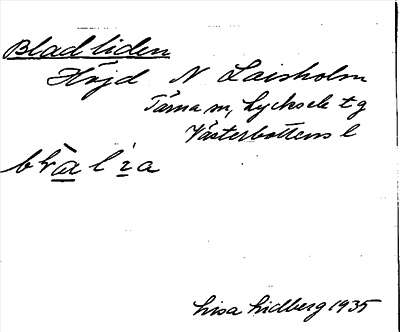 Bladliden
Höjd N Laisholm
Tärna sn, Lycksele tg
Västerbottens l
Lisa Lidberg 1935